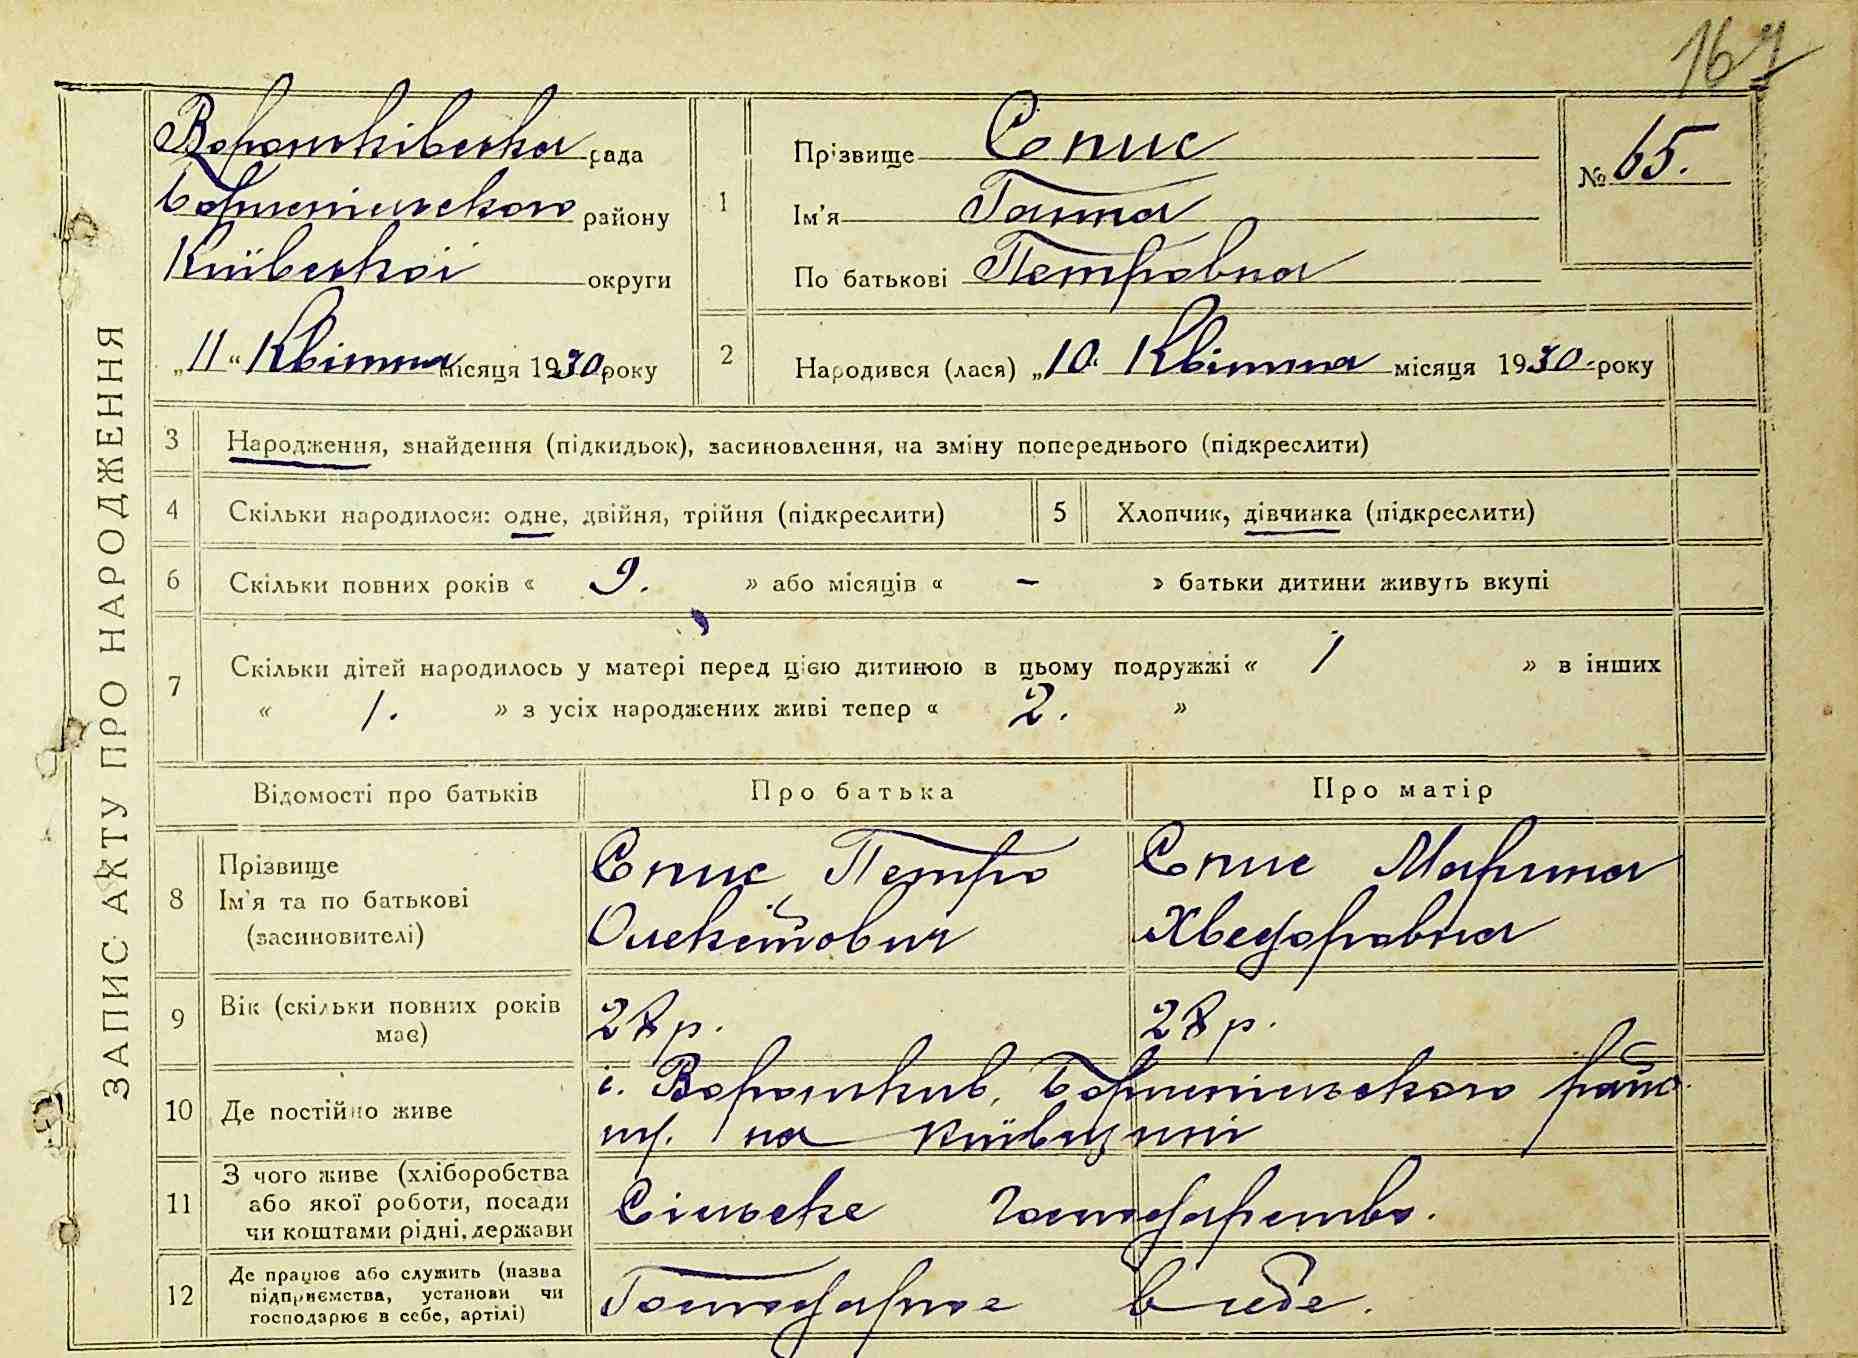 167
Вороньківська рада
Бориспільського району
Київської округи
„11“ Квітня місяця 1930 року
1
Прізвище Спис
Ім'я Ганна
По батькові Петровна
№ 65.
2
Народився (лася) „10“ Квітня місяця 1930 року
ЗАПИС АКТУ ПРО НАРОДЖЕННЯ
3 Народження, знайдення (підкидьок), засиновлення, на зміну попереднього (підкреслити)
4 Скільки народилося: одне, двійня, трійня (підкреслити)
5 Хлопчик, дівчинка (підкреслити)
6 Скільки повних років « 9. » або місяців « – » батьки дитини живуть вкупі
7 Скільки дітей народилось у матері перед цією дитиною в цьому подружжі « 1 » в інших
« 1. » з усіх народжених живі тепер « 2. »
Відомості про батьків Про батька Про матір
8 Прізвище
Ім'я та по батькові
(засиновителі)
Спис Петро
Олексійович
Спис Марина
Хведоровна
9 Вік (скільки повних років
має)
28 р. 28 р.
10 Де постійно живе
с. Вороньків, Бориспільського райо
ну. на Київщині
11 З чого живе (хліборобства
або якої роботи, посади
чи коштами рідні, держави
Сільське Господарство.
12 Де працює або служить (назва
підприємства, установи чи
господарює в себе, артілі)
Господарює в себе.